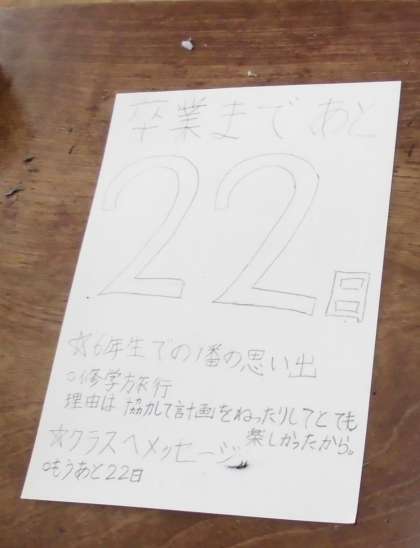 卒業まであと
22日
☆6年生での1番の思い出
○修学旅行
理由は協力して計画をねったりしてとても
楽しかったから。
☆クラスへメッセージ
○もうあと22日